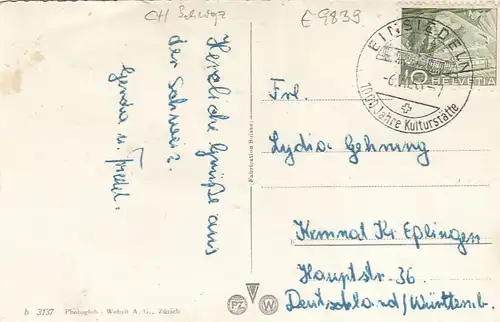 CH Schwyz
E 9839
Herzliche Grüße aus
der Schweiz.
Gerda u.
EINSIEDELN
1000 Jahre Kulturstätte
10
HELVETIA
Frl.
Lydia Gehrung
Kemnat Kr Eplingen
Hauptstr. 36
Deutschland/Württemb.
Fabrication Suisse
b 3137 Photoglob-Wehrli A. G., Zürich
PZ
W